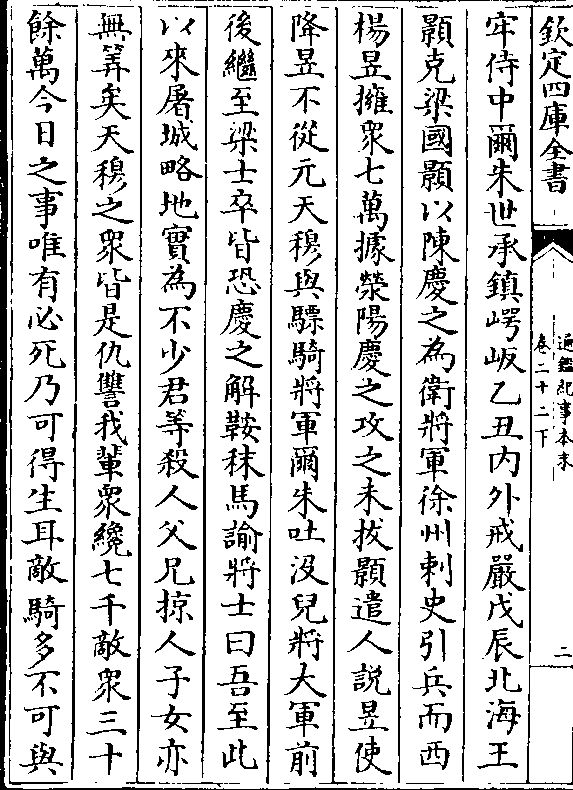 欽定四庫全書
通鑑紀事本末
卷二十二下
二
牢侍中爾朱世承鎮崿岅乙丑内外戒嚴戊辰北海王
顥克梁國顥以陳慶之為衛將軍徐州刺史引兵而西
楊昱擁衆七萬據滎陽慶之攻之未拔顥遣人説昱使
降昱不從元天穆與驃騎將軍爾朱吐没兒將大軍前
後繼至梁士卒皆恐慶之解鞍秣馬諭將士曰吾至此
以來屠城略地實為不少君等殺人父兄掠人子女亦
無筭矣天穆之衆皆是仇讐我輩衆纔七千敵衆三十
餘萬今日之事唯有必死乃可得生耳敵騎多不可與